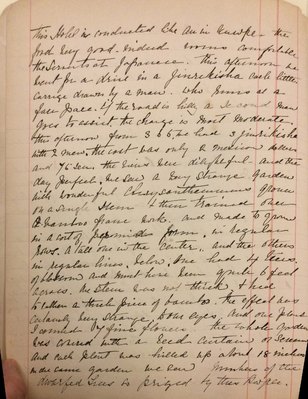 This Hotel is conducted like our in Europe - the
food very good. indeed rooms comfortable,
the Servants all Japanese. This afternoon we
went for a drive in a Jinrikisha each little
carriage drawn by a man. who runs at a
fair pace. if the road is hilly a second man
goes to assist the charge is most moderate.
this afternoon from 3 to 5 we had 3 jinrikishas
with 2 men, the cost was only a Mexican dollar
and 75 sen. the drive was delightful and the
day perfect, we saw a very strange garden
with wonderful Chrysanthemums grown
on a single stem & then trained over
a bamboo frame work, and made to grow
in a sort of pyramid form, in regular
rows. a tall one in the center, and the others
in regular lines, below. One had 4 tiers
of blossom and must have been quite 6 feet
across. the stem was not thick, & tied
to rather a thick piece of bamboo. the effect was
certainly very strange, to our eyes, and one plant
I counted 63 fine flowers, the whole garden
was covered with a reed curtain or screen
and each plant was hilled up about 18 inches
in the same garden we saw number of the
dwarfed trees so prized by the